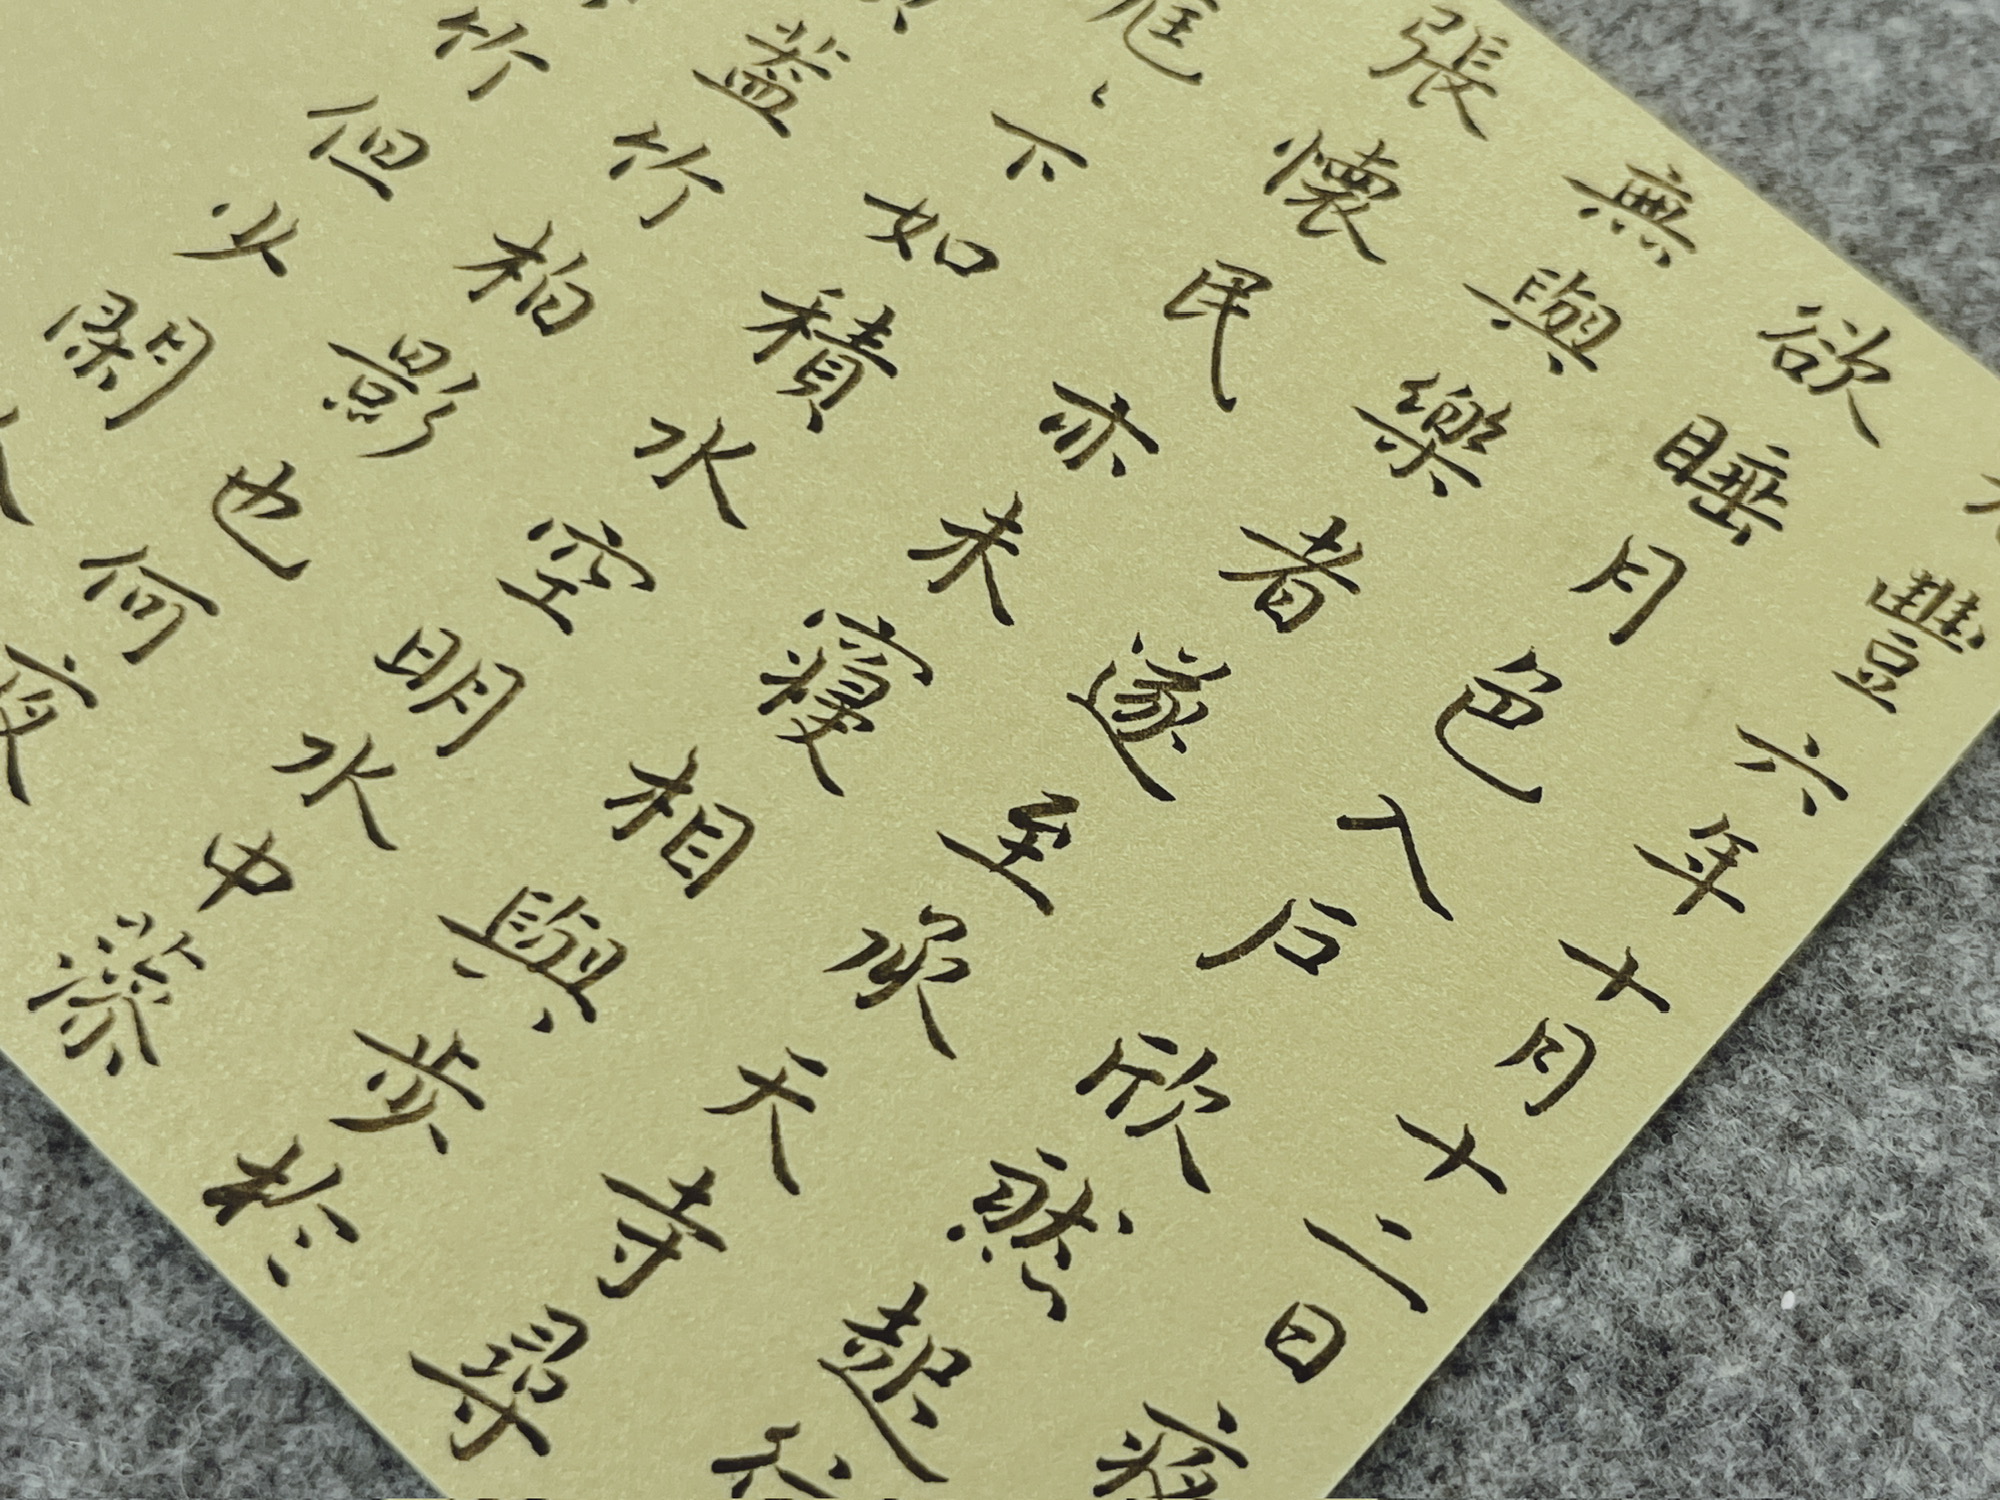 豐六年十月十二日夜
欲睡月色入戶欣然起行
無與樂者遂至承天寺尋
張懷民亦未寢相與步於
庭、下如積水空明水中藻
蓋竹柏影也何夜
竹
但少閑人